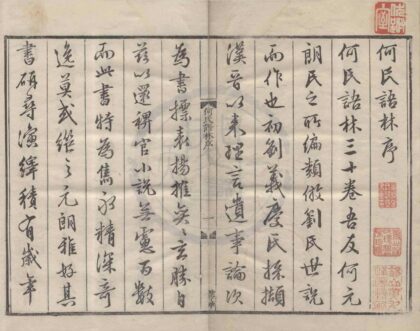 何氏語林序
何氏語林三十卷吾友何元
朗氏之所編類倣劉氏世說
而作也初劉義慶氏採擷
漢晉以來理言遺事論次
何氏語林序
一
為書標表揚搉奕々玄勝自
茲以還稗官小說無慮百數
而此書特為雋永精深奇
逸莫或繼之元朗雅好其
書研尋演繹積有歲年